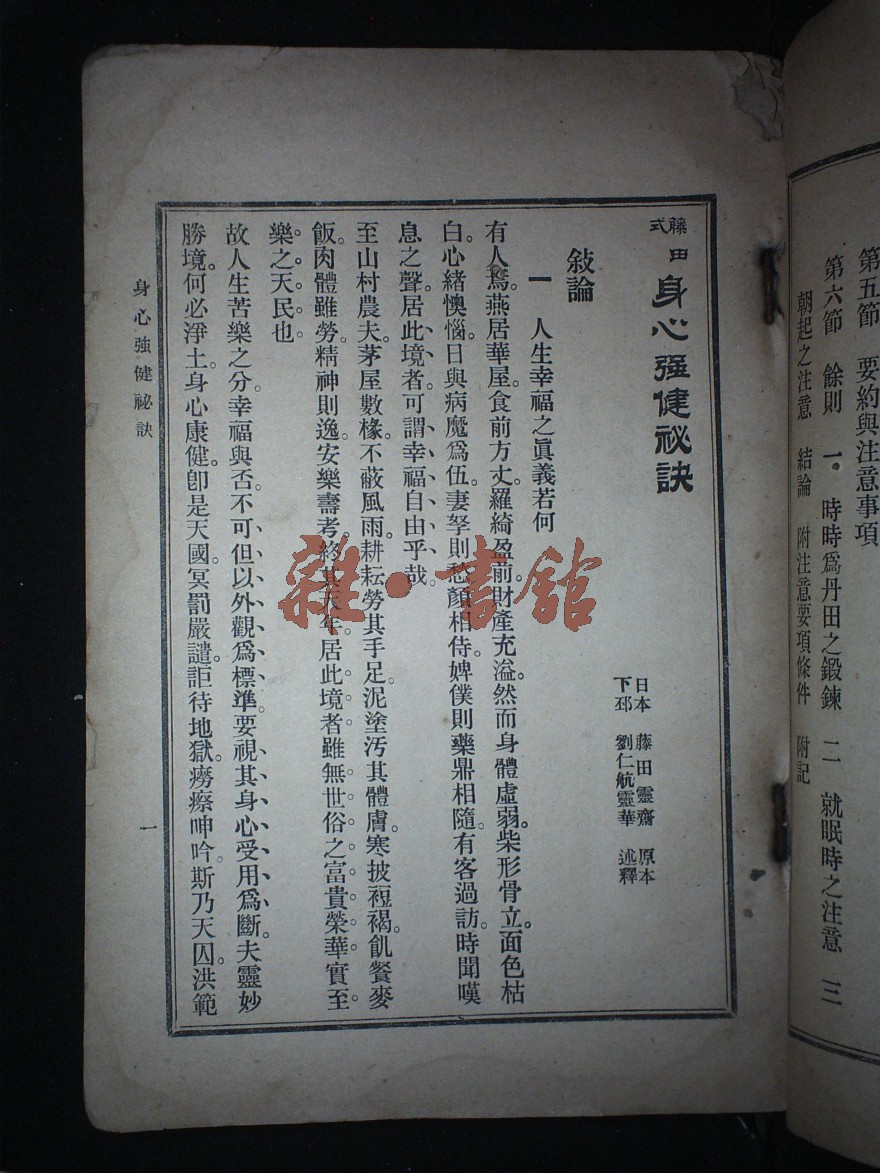 第五節　要約與注意事項
第六節　餘則　一　時時爲丹田之鍛鍊　二　就眠時之注意　三
朝起之注意　結論　附注意要項條件　附記
藤田式身心强健祕訣
日本　藤田靈齋　原本
下邳　劉仁航靈華　述釋
敍論
一　人生幸福之眞義若何
有人焉。燕居華屋。食前方丈。羅綺盈前。財產充溢。然而身體虛弱。柴形骨立。面色枯
白。心緒懊惱。日與病魔爲伍。妻孥則愁顏相侍。婢僕則藥鼎相隨。有客過訪。時聞嘆
息之聲。居此境者。可謂幸福自由乎哉。
至山村農夫。茅屋數椽。不蔽風雨。耕耘勞其手足。泥塗汚其體膚。寒披裋褐。飢餐麥
飯。肉體雖勞。精神則逸。安樂壽考。終其天年。居此境者。雖無世俗之富貴榮華。實至
樂之天民也
故人生苦樂之分。幸福與否。不可但以外觀爲標準。要視其身心受用爲斷。夫靈妙
勝境。何必淨土。身心康健。卽是天國。冥罰嚴譴。詎待地獄。癆瘵呻吟。斯乃天囚。洪範
身心強健祕訣
一
雜·書館